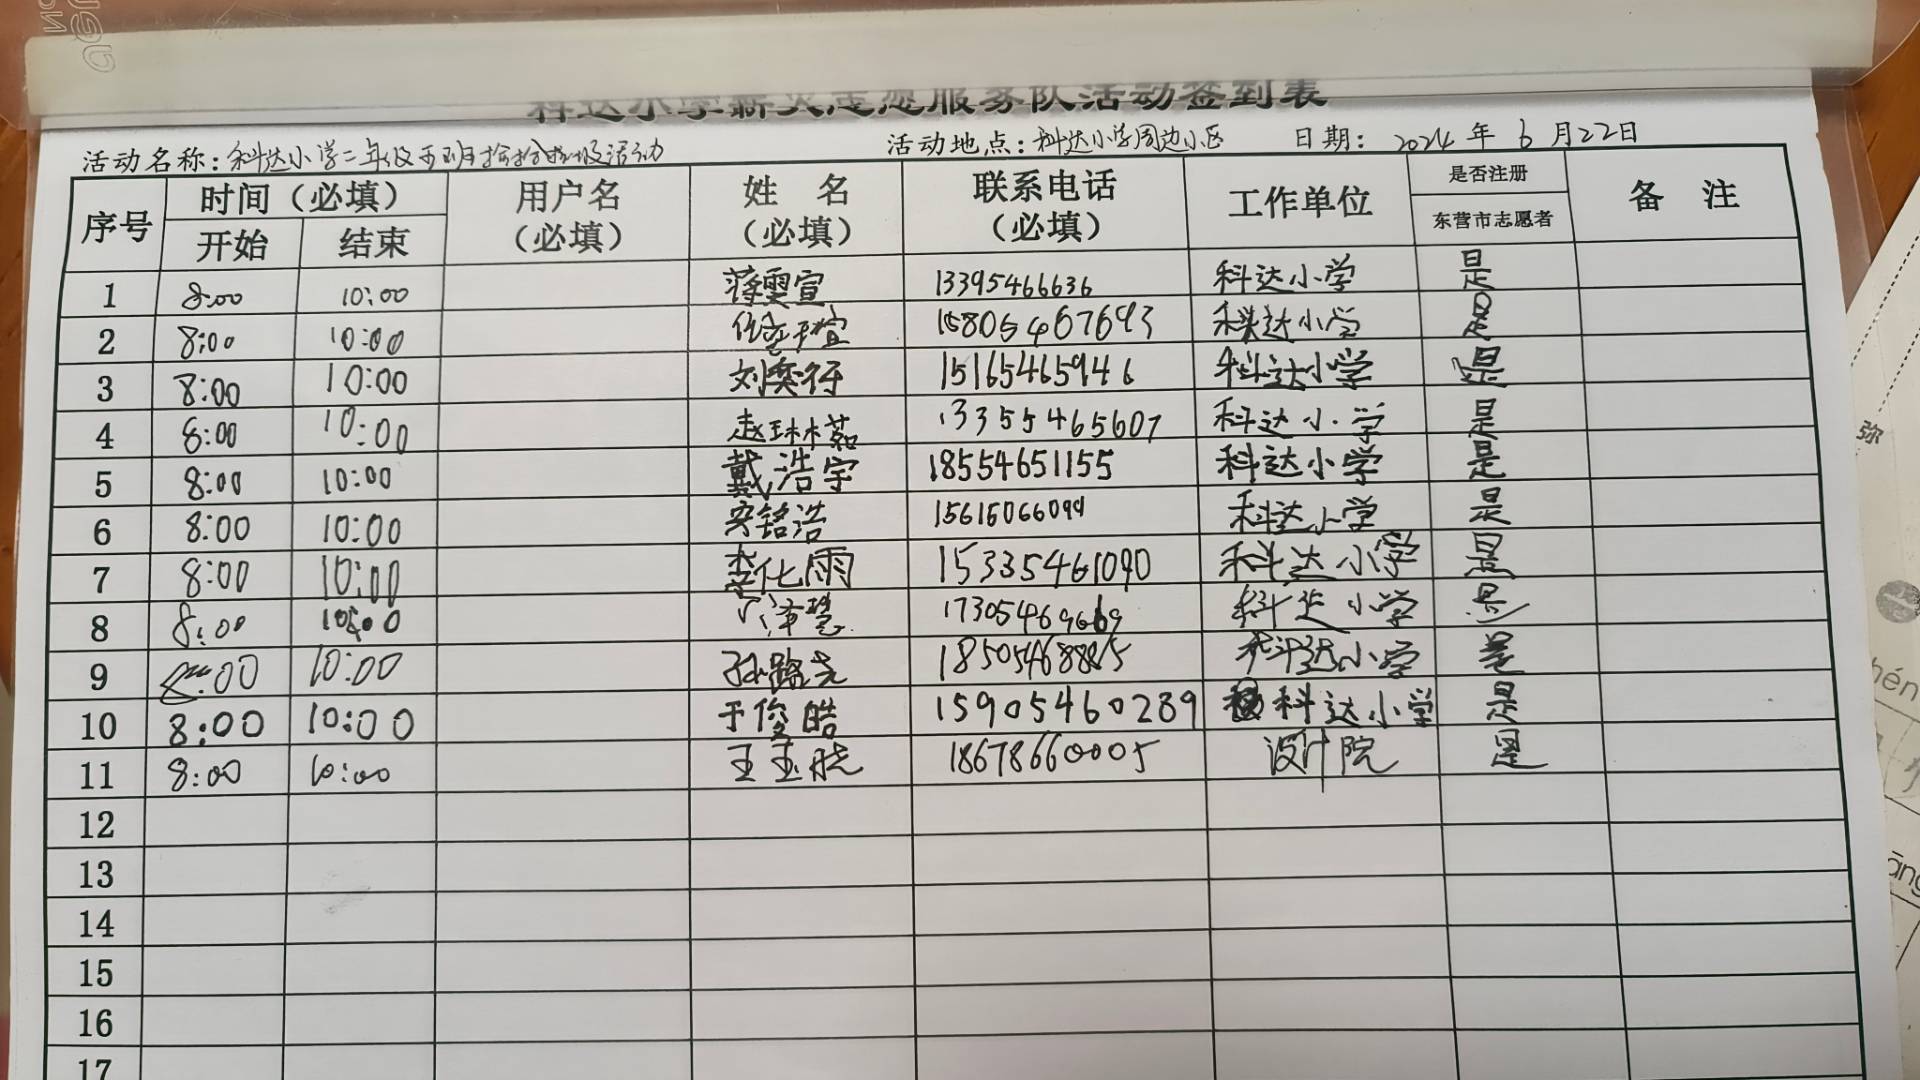 科达小学薪火志愿服务队活动签到表
活动名称：科达小学二年级五班捡拾垃圾活动 活动地点：科达小学周边小区 日期：2024年6月22日
序号 时间（必填） 用户名（必填） 姓 名（必填） 联系电话（必填） 工作单位 是否注册 备 注
开始 结束 东营市志愿者
1 8:00 10:00 蒋雯宣 13395466636 科达小学 是
2 8:00 10:00 科达小学 是
3 8:00 10:00 刘奕行 15165465946 科达小学 是
4 8:00 10:00 赵琳茹 13355465607 科达小学 是
5 8:00 10:00 戴浩宇 18554651155 科达小学 是
6 8:00 10:00 安铭浩 15615066099 科达小学 是
7 8:00 10:00 李化雨 15335461090 科达小学 是
8 8:00 10:00 科达小学 是
9 8:00 10:00 孙路尧 科达小学 是
10 8:00 10:00 于俊皓 15905460289 科达小学 是
11 8:00 10:00 王玉晓 18678660005 设计院 是
12
13
14
15
16
17
弥
hén
āng